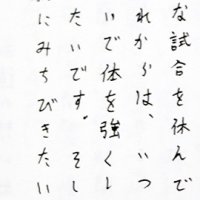 な試合を休んで
れからは、いつ
いで体を強くし
たいです。そし
にみちびきたい